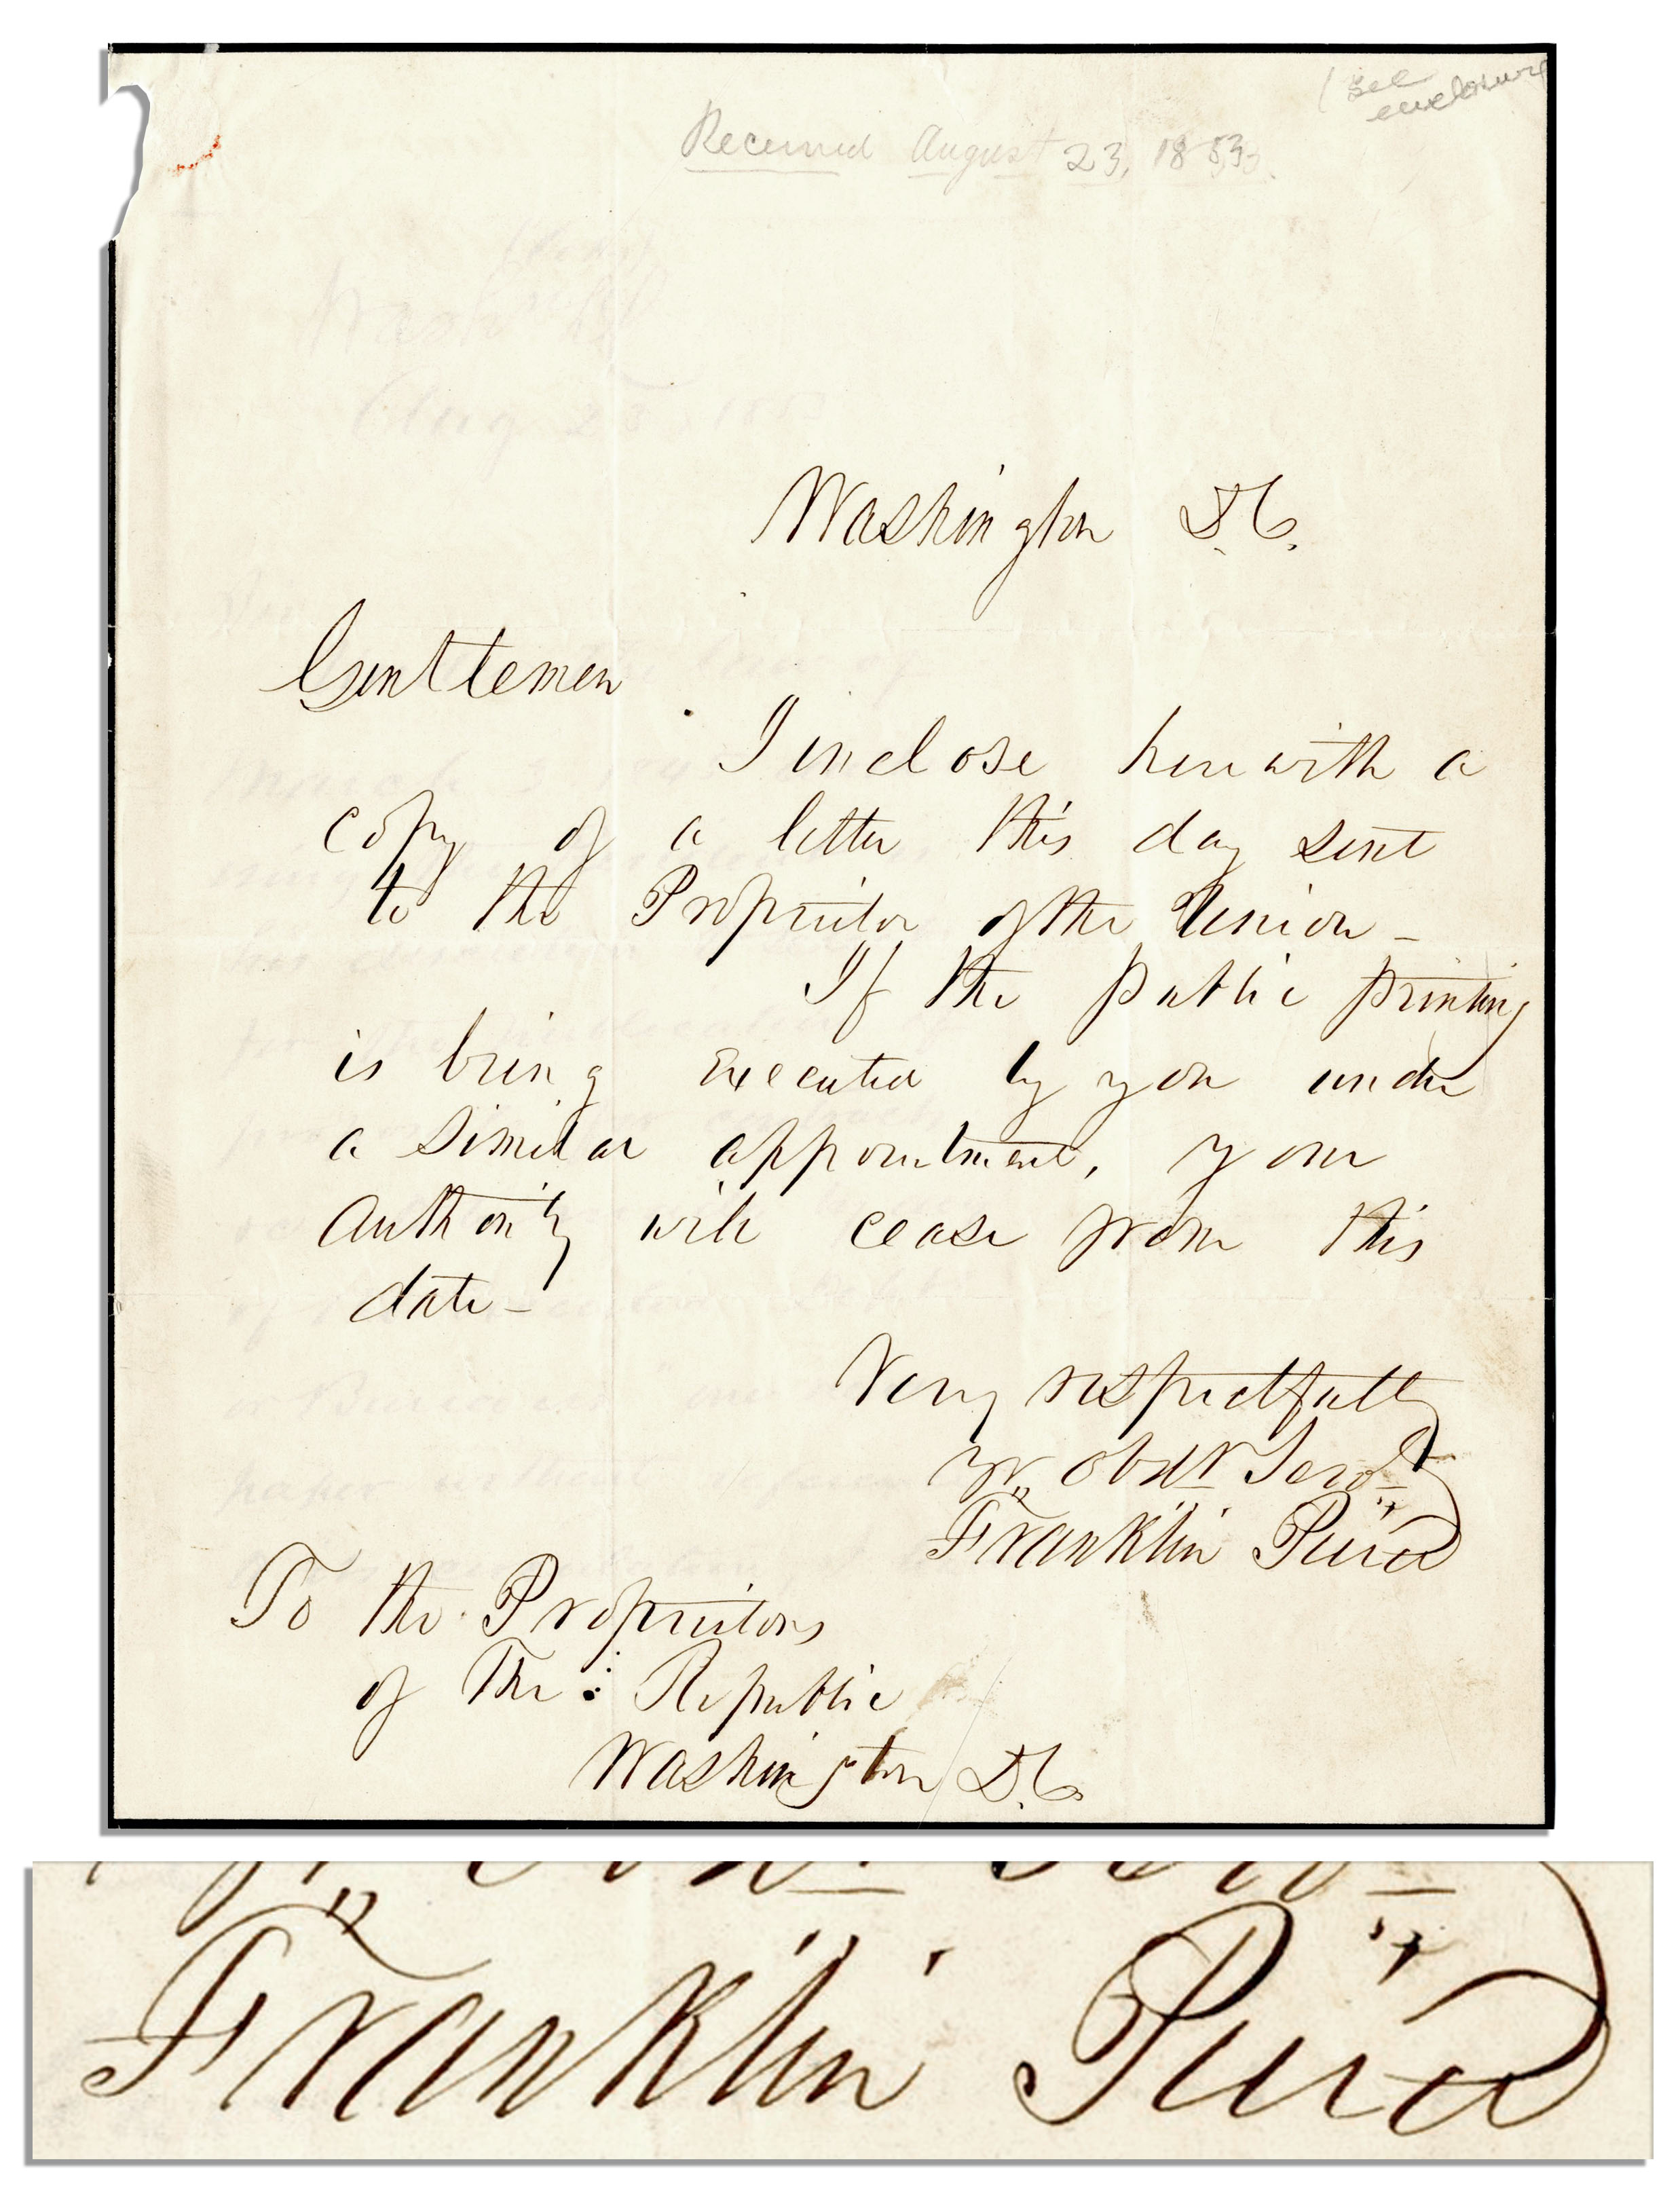 (see
enclosure
Received August 23, 1853.
Washington D.C.
Gentlemen
I inclose herewith a
copy of a letter this day sent
to the Proprietor of the Union –
If the public printing
is being executed by you under
a similar appointment, your
authority will cease from this
date –
Very respectfully
yr. Obdt Servt
Franklin Pierce
To the Proprietors
of The : Republic
Washington D.C.
Franklin Pierce